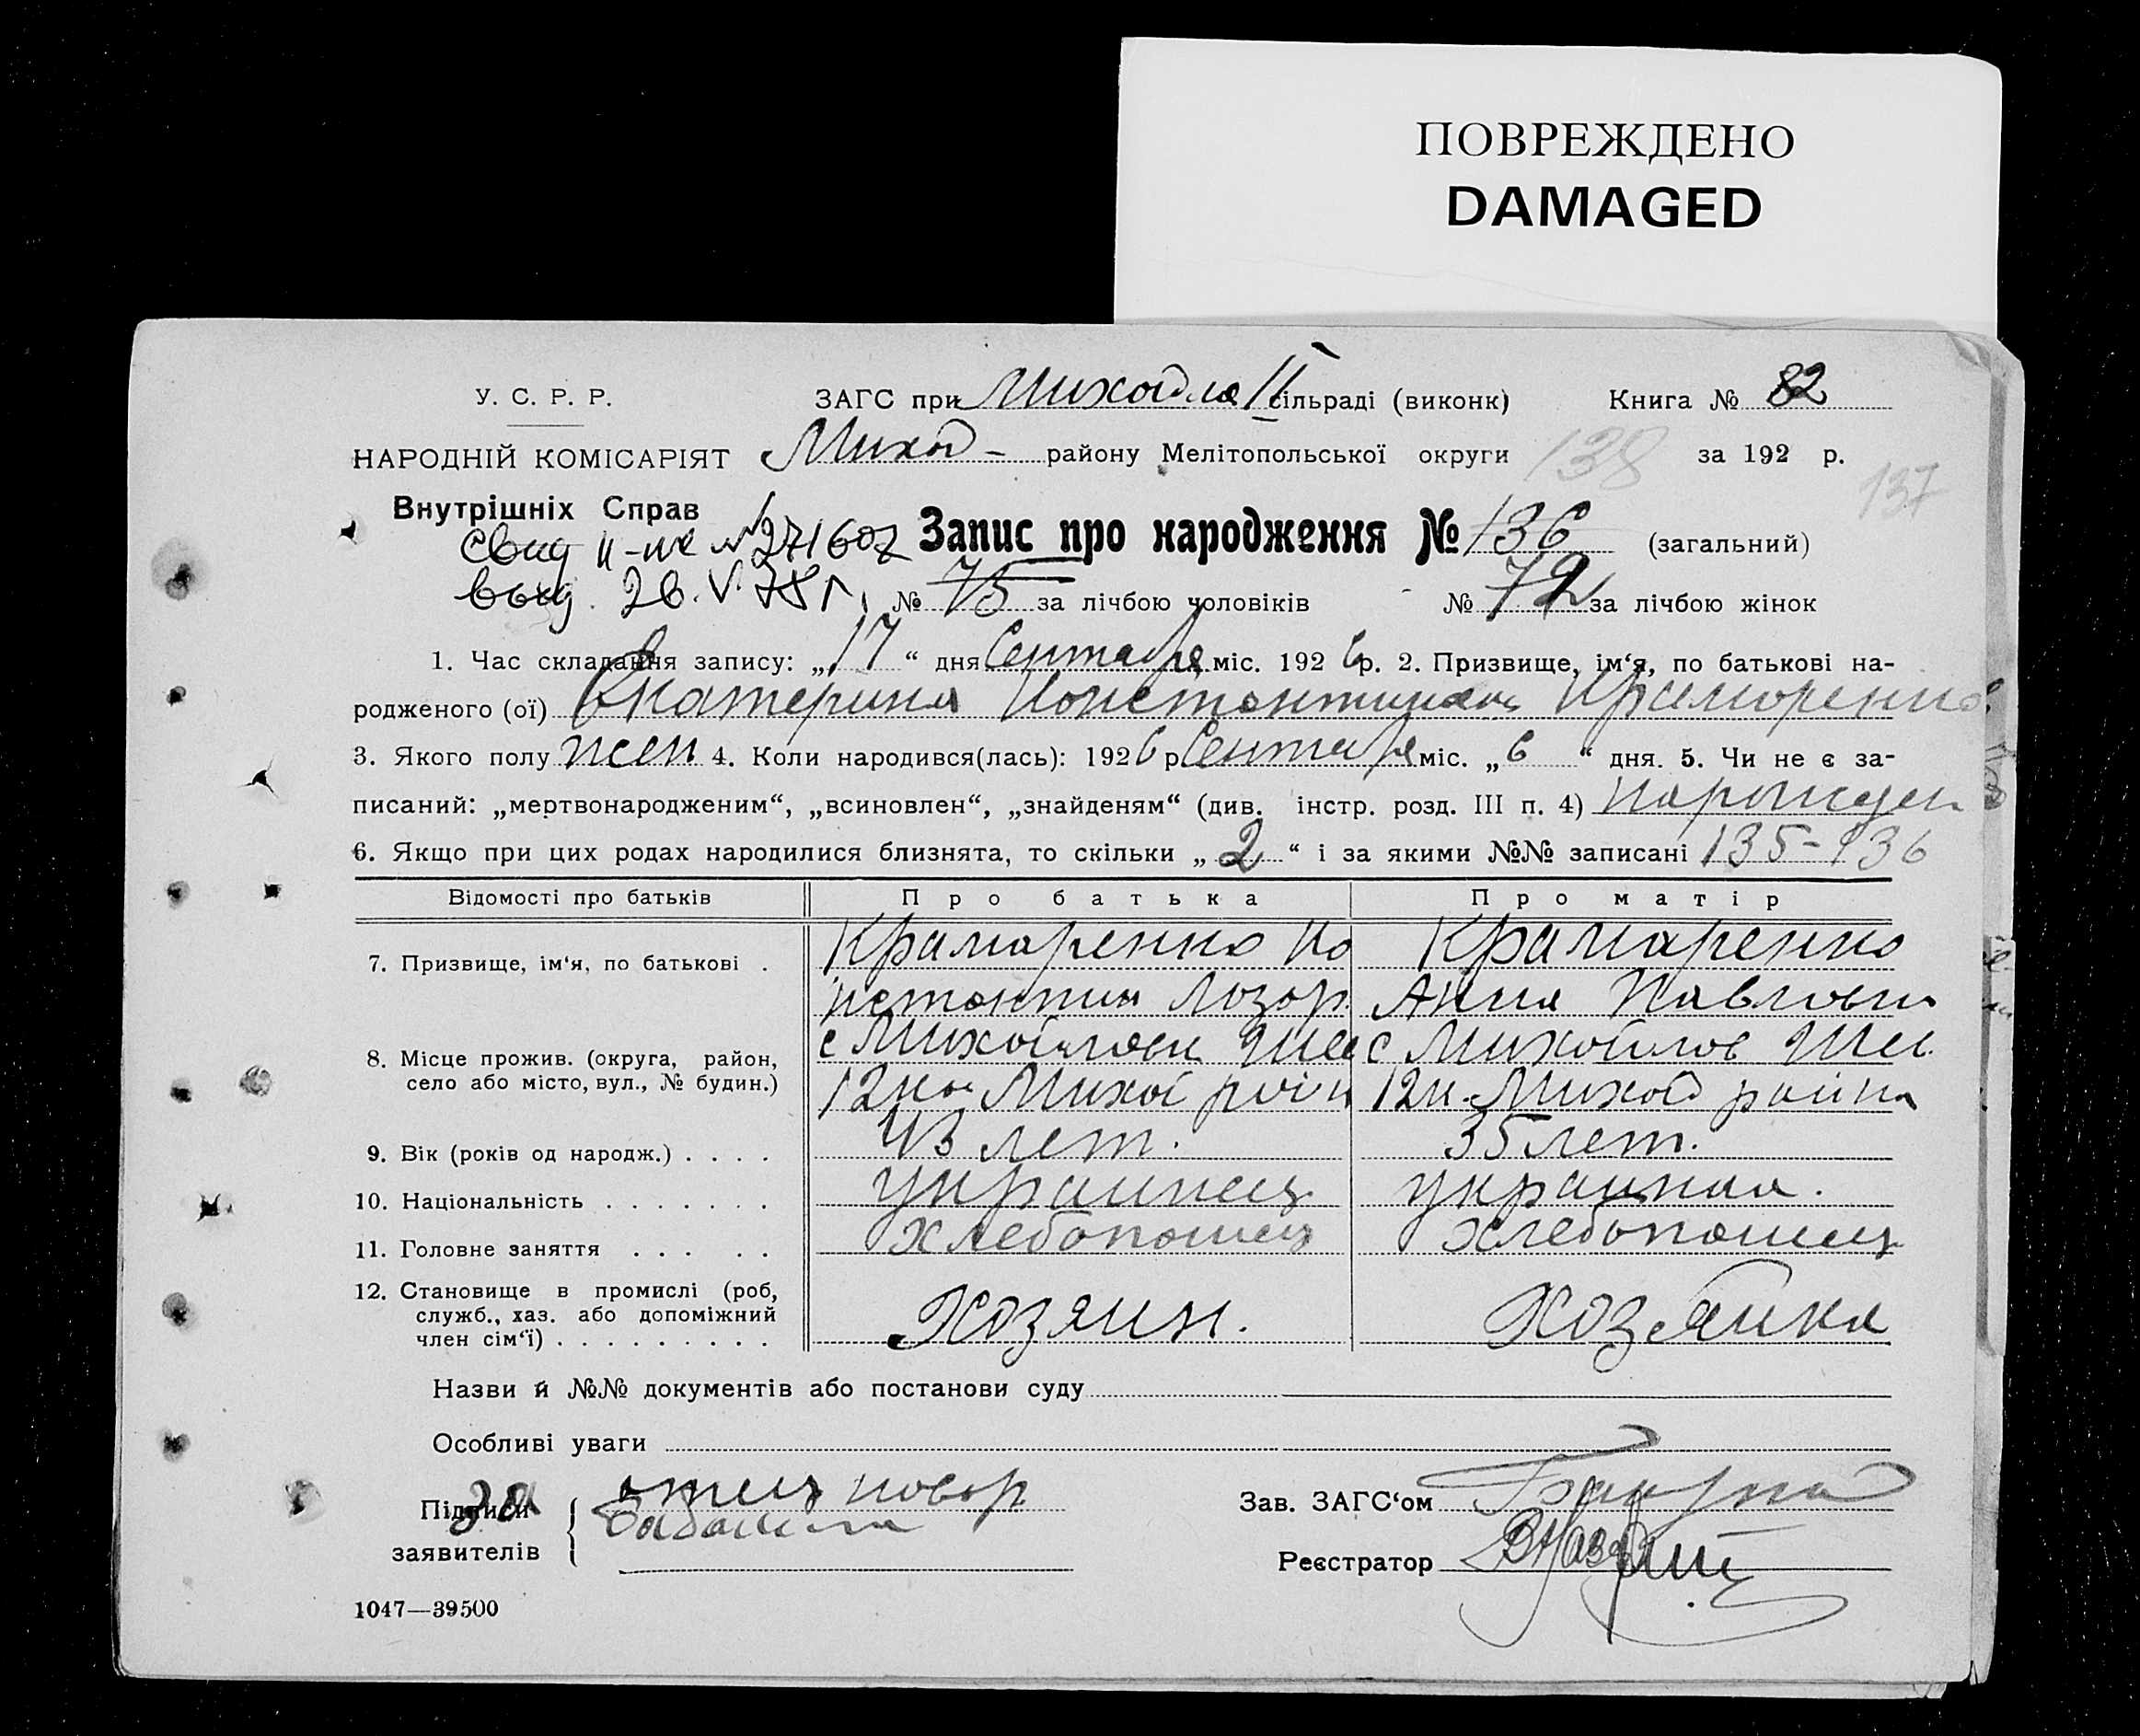 ПОВРЕЖДЕНО
DAMAGED
У. С. Р. Р. ЗАГС при Михайло II сільраді (виконк) Книга № 82
НАРОДНІЙ КОМІСАРІЯТ Михай- району Мелітопольської округи 138 за 192 р.
137
Внутрішніх Справ
свид II-ЖС №271607 Запис про народження № 136 (загальний)
выд. 26.V.78г. № 75 за лічбою чоловіків № 72 за лічбою жінок
1. Час складання запису: „17“ дня Сентября міс. 1926 р. 2. Призвище, ім‘я, по батькові на-
родженого (ої) Екатерина Константинов Крамаренко
3. Якого полу жен 4. Коли народився(лась): 1926 р Сентября міс. „6“ дня. 5. Чи не є за-
писаний: „мертвонародженим“, „всиновлен“, „знайденям“ (див. інстр. розд. III п. 4) нарожден
6. Якщо при цих родах народилися близнята, то скільки „2“ і за якими №№ записані 135-136
Відомості про батьків Про батька Про матір
7. Призвище, ім‘я, по батькові . Крамаренко Ко Крамаренко
нстантин Лазар. Анна Павловн
8. Місце прожив. (округа, район, с Михайловк с Михайлов
село або місто, вул., № будин.) Михай район Михай район
9. Вік (років од народж.) . . . . 43 лет. 35 лет.
10. Національність . . . . . . . украинец украинка.
11. Головне заняття . . . . . хлебопашец хлебопашец
12. Становище в промислі (роб,
служб., хаз. або допоміжний
член сім‘ї) . . . . . . . . . Хозяин. Хозяйка
Назви й №№ документів або постанови суду
Особливі уваги
Підписи за отец Зав. ЗАГС‘ом
заявителів Реєстратор
1047—39500